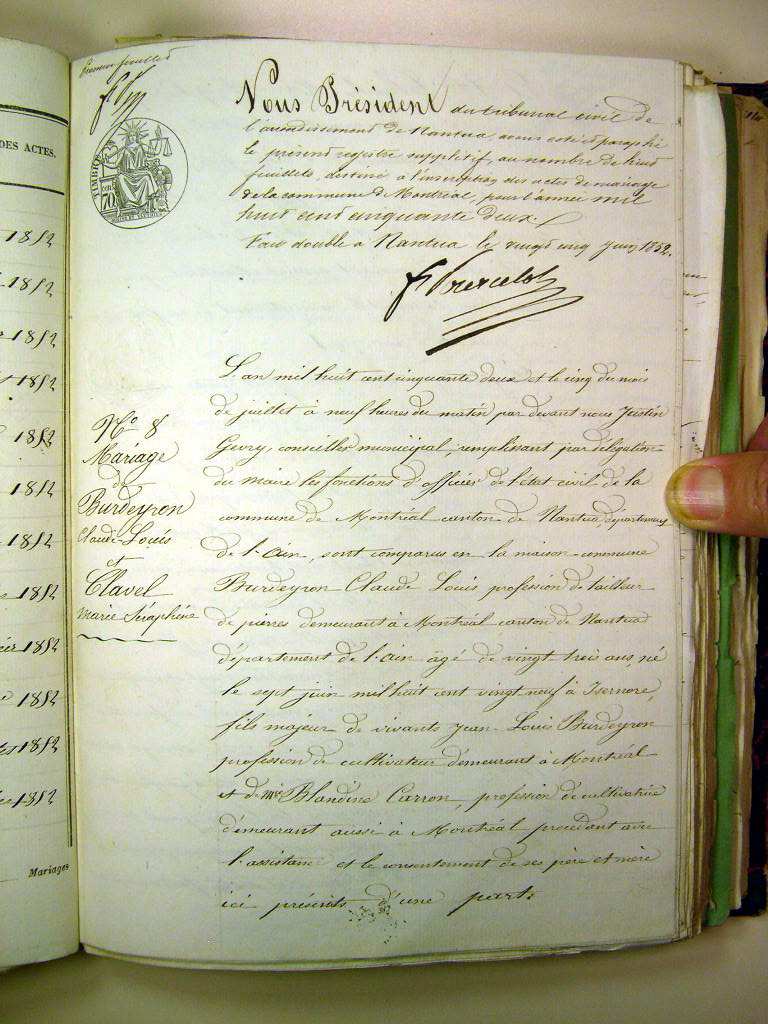 DES ACTES.
1852
1852
1852
1852
1852
1852
1852
1852
1852
1852
1852
1852
Mariages
Premier feuillet
TIMBRE
70
Nous Président du tribunal civil de
l'arrondissement de Nantua avons coté & paraphé
le présent registre supplétif, au nombre de huit
feuillets, destiné à l'inscription des actes de mariage
de la commune de Montréal, pour l'année mil
huit cent cinquante deux.
Fait double à Nantua le vingt cinq Juin 1852.
N° 8
Mariage
de
Burdeyron
Claude Louis
et
Clavel
marie Séraphine
L'an mil huit cent cinquante deux et le cinq du mois
de juillet à neuf heures du matin par devant nous Justin
conseiller municipal, remplissant par délégation
du maire les fonctions d'officier de l'état civil de la
commune de Montréal canton de Nantua département
de l'ain, sont comparus en la maison commune
Burdeyron Claude Louis profession de tailleur
de pierres demeurant à Montréal canton de Nantua
département de l'ain âgé de vingt trois ans, né
le sept juin mil huit cent vingt neuf à Isernore,
fils majeur de vivants Jean Louis Burdeyron
profession de cultivateur demeurant à Montréal
et de Mie Blandine Carron, profession de cultivatrice
demeurant aussi à Montréal procédant avec
l'assistance et le consentement de ses père et mère
ici présents d'une part.